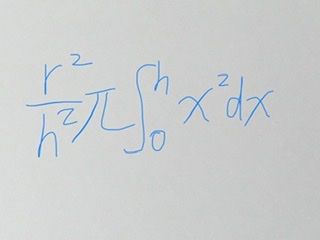 \frac{r^2}{h^2} \pi \int_0^h x^2 dx